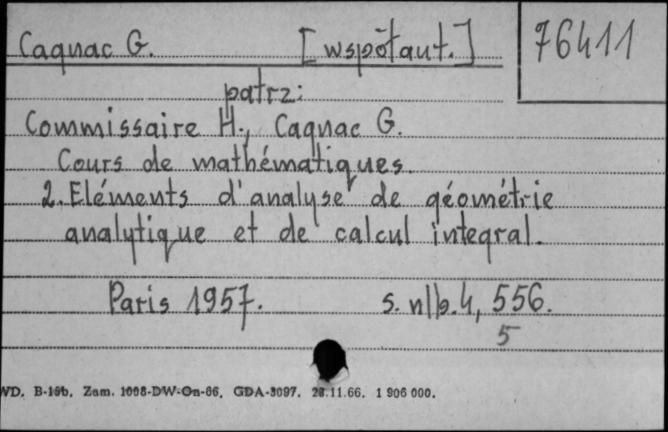 Cagnac G. [współaut.] 76411
patrz:
Commissaire H., Cagnac G.
Cours de mathématiques.
2. Eléments d'analyse de géométrie
analytique et de calcul integral.
Paris 1957. s. nlb. 4, 556.
5
WD. B-19b. Zam. 1008-DW-On-66. GDA-3097. 28.11.66. 1 906 000.